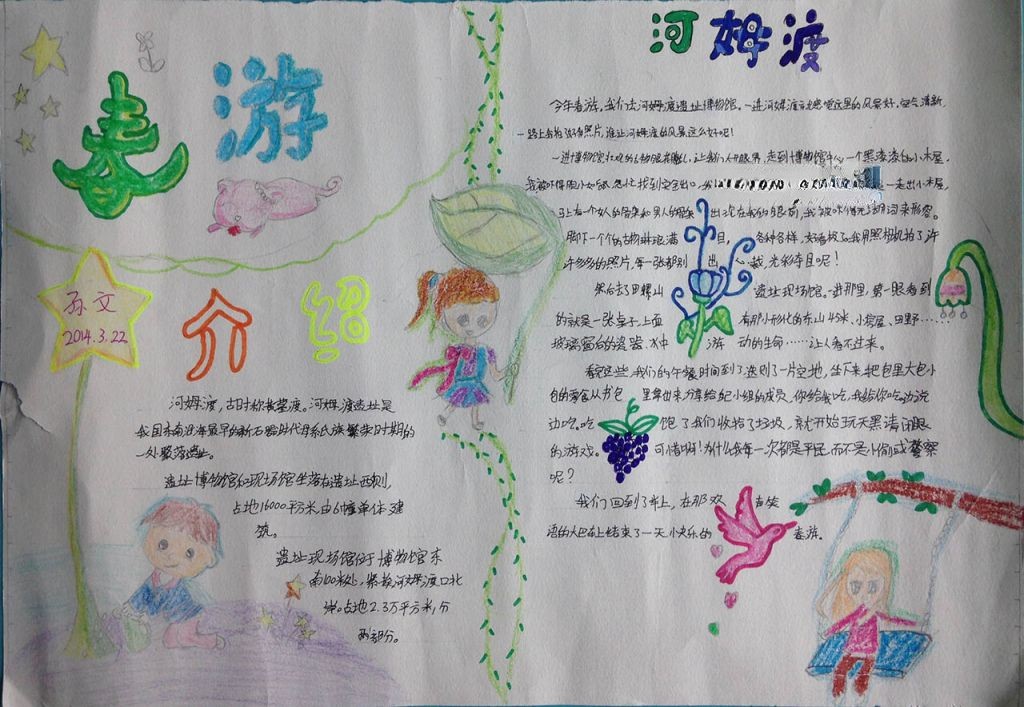 春游
河姆渡
孙文
2014.3.22
介绍
河姆渡,古时称黄墓渡。河姆渡遗址是
我国东南沿海最早的新石器时代母系氏族繁荣时期的
一处聚落遗址。
遗址博物馆和现场馆坐落在遗址西侧,
占地16000平方米,由6幢单体建
筑。
遗址现场馆位于博物馆东
南100米处,紧挨河姆渡渡口北
岸。占地2.3万平方米,分
两部分。
今年春游,我们去河姆渡遗址博物馆。一进河姆渡就感觉这里的风景好,空气清新,
一路上我拍了好多照片,谁让河姆渡的风景这么好呢!
一进博物馆,让我们大开眼界,走到博物馆中,一个黑漆漆的小木屋,
我被吓得胆小如鼠,急忙找到安全出口,一走出小木屋,
马上有一个女人的骨架和男人的骨架出现在我的眼前,我被吓得无法用词来形容。
脚下一个个的古物琳琅满目,各种各样,好看极了。我用照相机拍了许
许多多的照片,每一张都别出心裁,光彩夺目呢!
然后去了田螺山遗址现场馆。一进那里,第一眼看到
的就是一张桌子,上面有那小形化的东山45米、小房屋、田野……
玻璃窗台的瓷器、水中游动的生命……让人看不过来。
看完这些,我们的午餐时间到了,选到了一片空地,坐下来,把包里大包小
包的零食从书包里拿出来分享给组小组的成员,你给我吃,我给你吃,边说
边吃。吃饱了我们收拾了垃圾,就开始玩天黑请闭眼
的游戏。可惜啊!为什么我每一次都是平民,而不是小偷或警察
呢?
我们回到了车上,在那欢声笑
语的大巴车上结束了一天小快乐的春游。